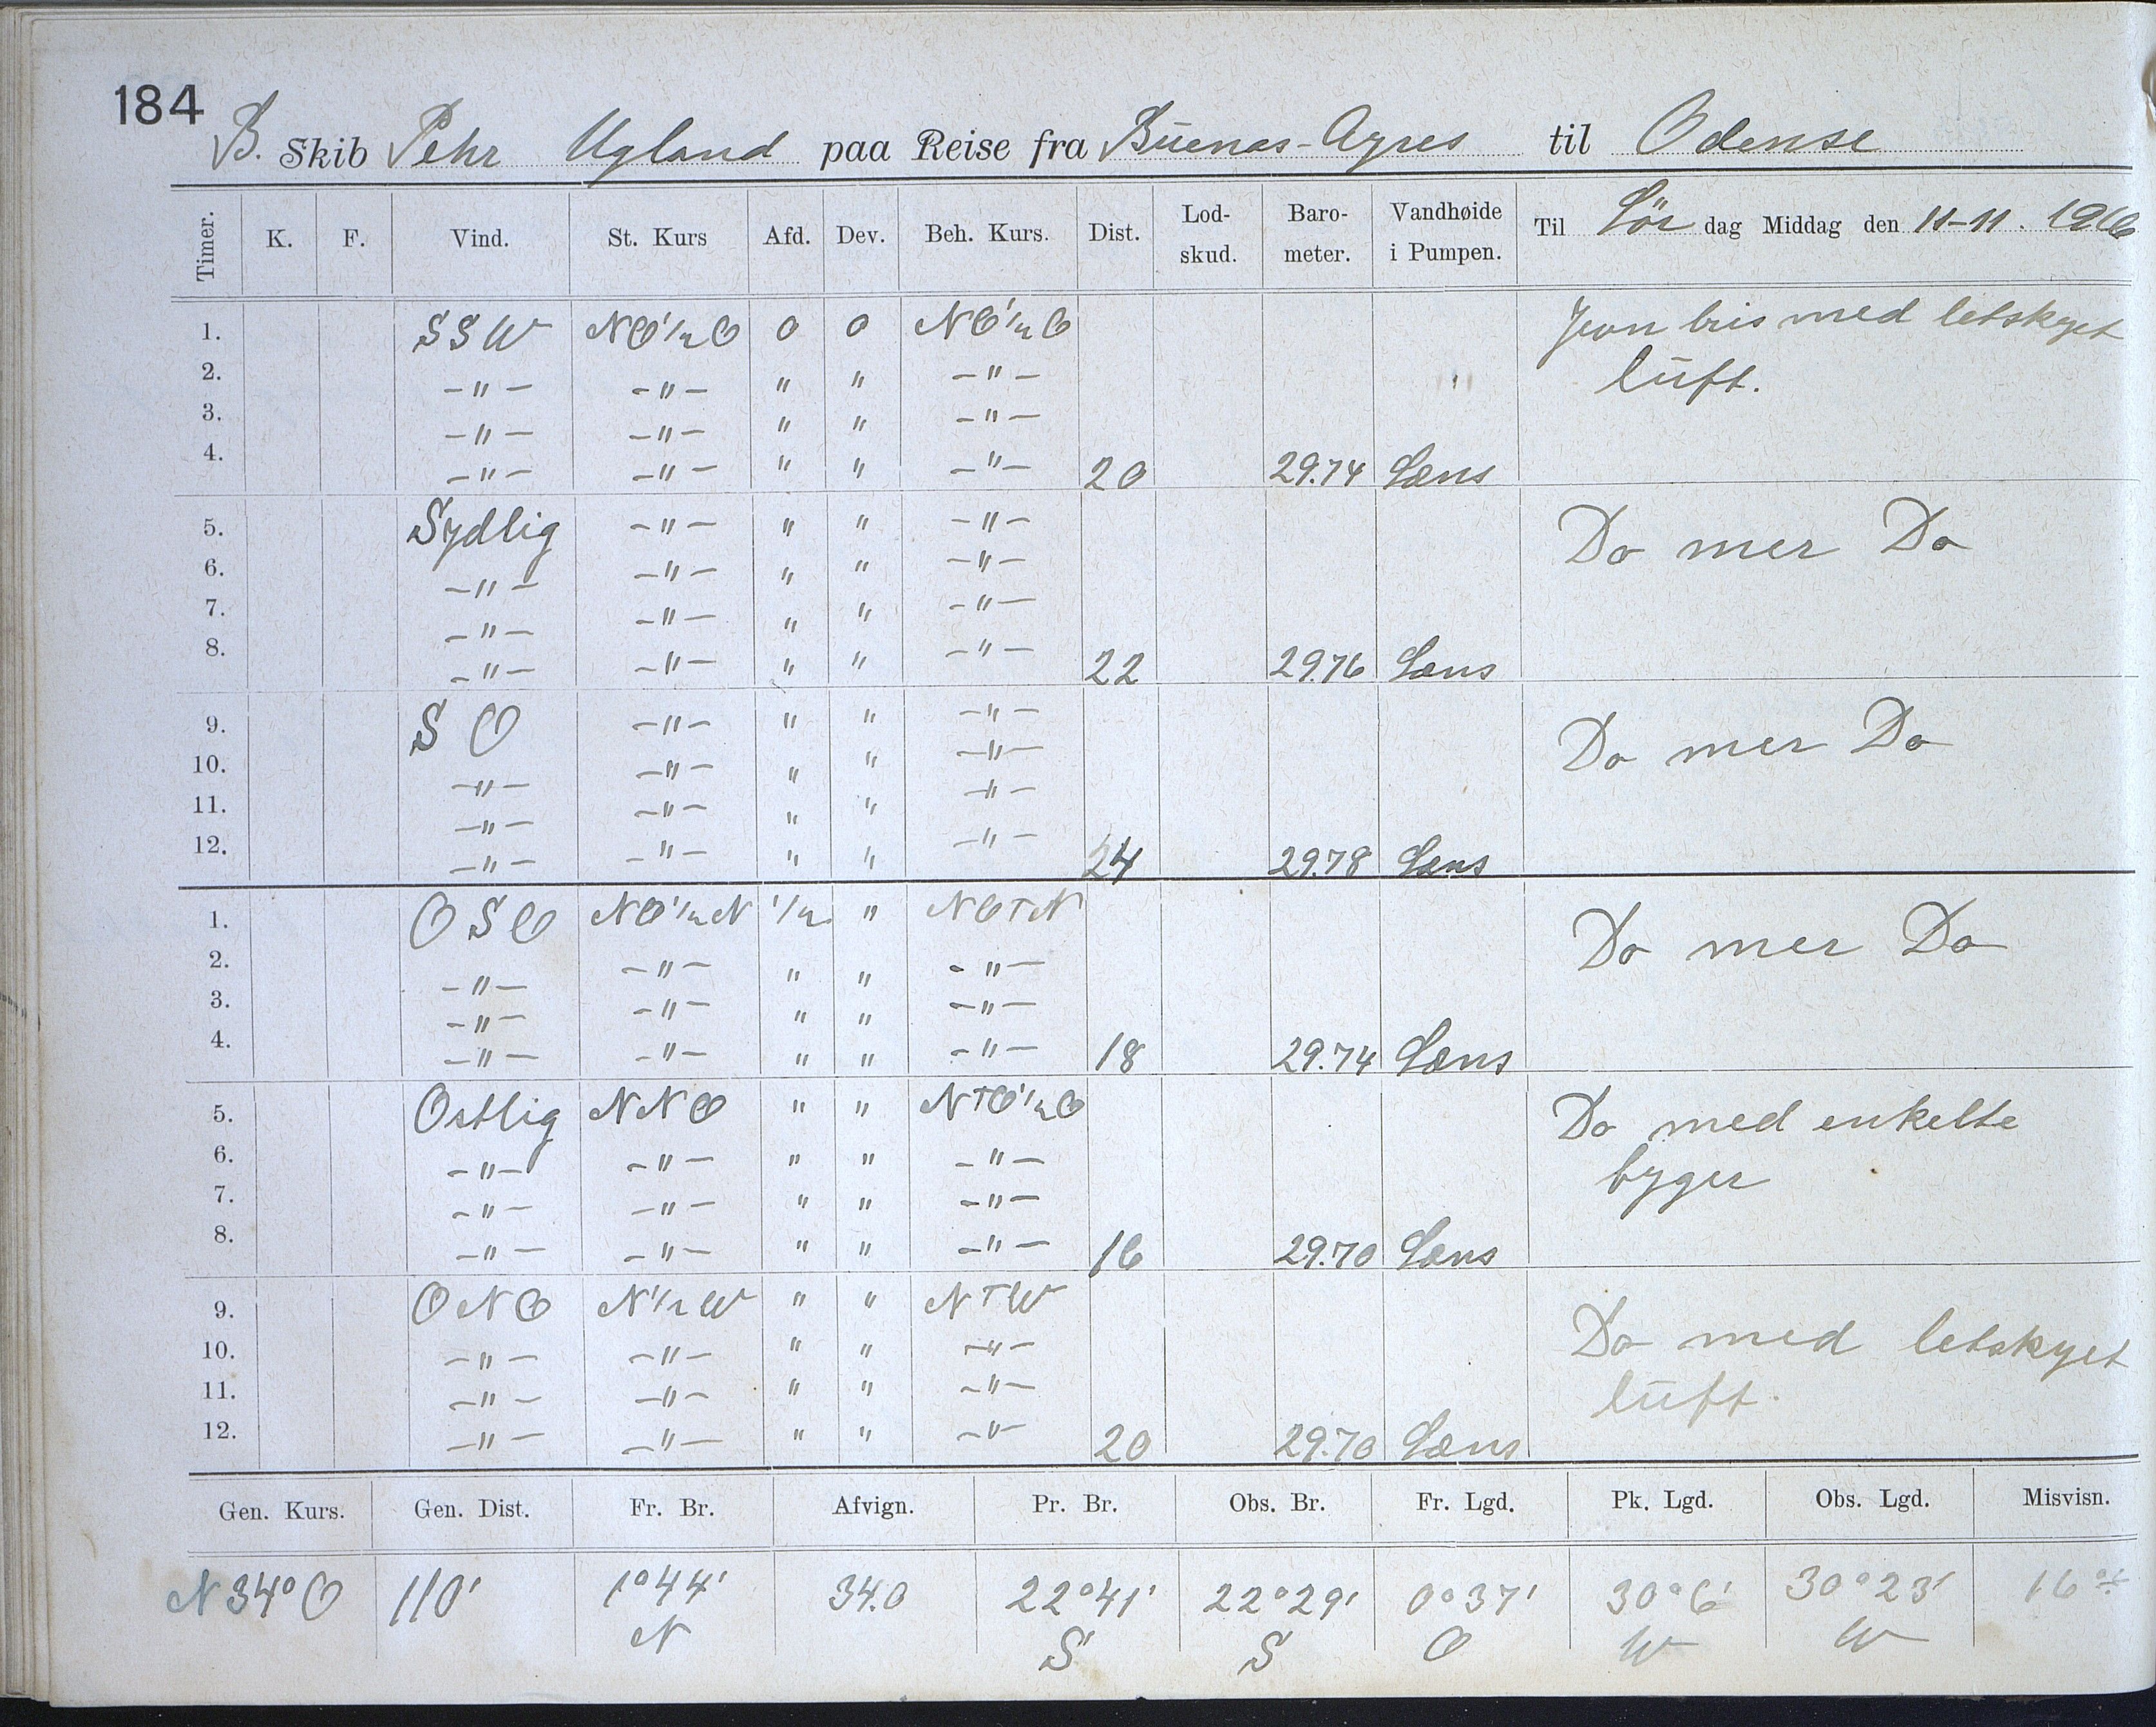 184
B. Skib Pehr Ugland paa Reise fra Buenas-Ayres til Odense
Timer. K. F. Vind. St. Kurs Afd. Dev. Beh. Kurs. Dist. Lod-skud. Baro-meter. Vandhøide i Pumpen. Til Lör dag Middag den 11-11. 1916
1. SSW NO½O 0 0 NO½O Jevn bris med letskyet
2. -"- -"- " " -"- luft.
3. -"- -"- " " -"-
4. -"- -"- " " -"- 20 29.74 Læns
5. Sydlig -"- " " -"- Do mer Do
6. -"- -"- " " -"-
7. -"- -"- " " -"-
8. -"- -"- " " -"- 22 29.76 Læns
9. SO -"- " " -"- Do mer Do
10. -"- -"- " " -"-
11. -"- -"- " " -"-
12. -"- -"- " " -"- 24 29.78 Læns
1. OSO NO½N ½ " NOTN Do mer Do
2. -"- -"- " " -"-
3. -"- -"- " " -"-
4. -"- -"- " " -"- 18 29.74 Læns
5. Ostlig NNO " " NTO½O Do med enkelte
6. -"- -"- " " -"- byger
7. -"- -"- " " -"-
8. -"- -"- " " -"- 16 29.70 Læns
9. ONO N½W " " NTW Do med letskyet
10. -"- -"- " " -"- luft.
11. -"- -"- " " -"-
12. -"- -"- " " -"- 20 29.70 Læns
Gen. Kurs. Gen. Dist. Fr. Br. Afvign. Pr. Br. Obs. Br. Fr. Lgd. Pk. Lgd. Obs. Lgd. Misvisn.
N 34° O 110' 1°44' N 34.0 22°41' S 22°29' S 0°37' O 30°6' W 30°23' W 16°